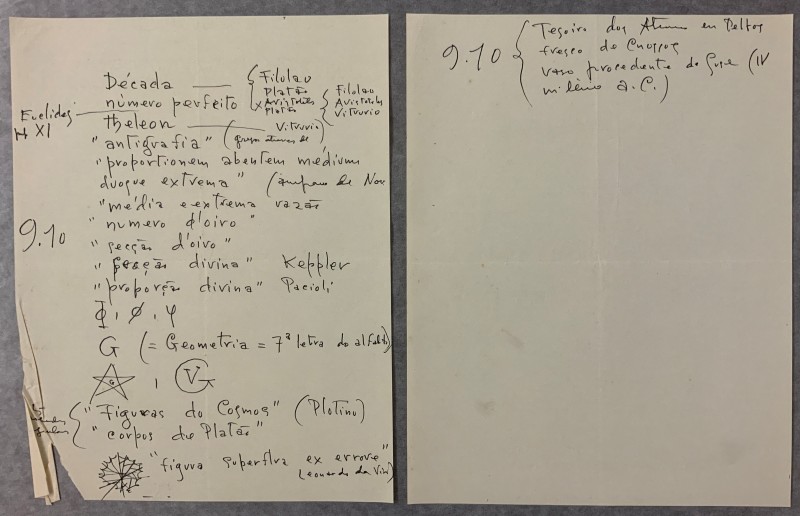 Década — { Filolao
Platão
Aristóteles
Platão
Euclides — número perfeito { Filolao
Aristoteles
Vitruvio
XI
theleon — Vitruvio
"antigrafia" (
"proportionem abentem médium
duoque extrema" (
"média e extrema razão
9.10
"numero d'oiro"
"secção d'oiro"
"secção divina" Keppler
"proporção divina" Pacioli
Φ, ϕ, φ
G (= Geometria = 7ª letra do alfabeto)
G , G V
"Figuras do Cosmos" (Plotino)
"corpos de Platão"
"figura superflua ex errore"
(Leonardo da Vinci)
9.10 { Tesoiro dos Atenn en Delfos
fresco de Cnossos
vaso procedente de Suse (IV
milénio a.C.)